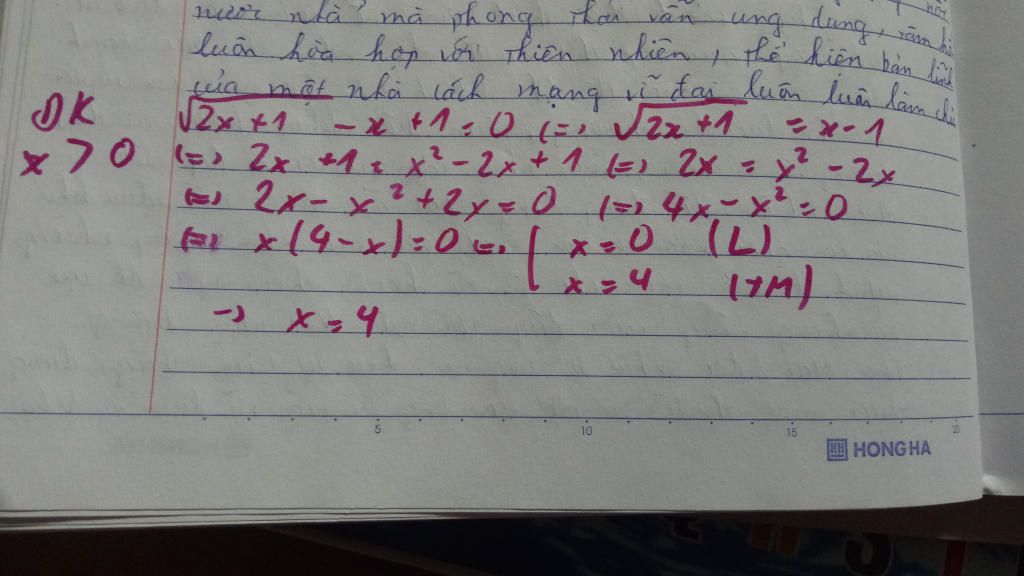 nước nhà mà phong thái vẫn ung dung,
luôn hòa hợp với thiên nhiên, thể hiện bản lĩnh
của một nhà cách mạng vĩ đại luôn luôn làm chủ
ĐK
x > 0
√2x+1 - x + 1 = 0 (=) √2x+1 = x - 1
(=) 2x + 1 = x² - 2x + 1 (=) 2x = x² - 2x
(=) 2x - x² + 2x = 0 (=) 4x - x² = 0
(=) x(4-x) = 0 (=) [ x = 0 (L)
x = 4 (TM)
→ x = 4
5 10 15 20
HH HONG HA